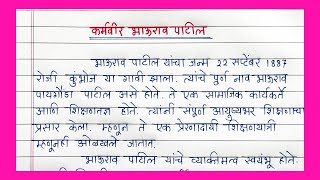 कर्मवीर भाऊराव पाटील
भाऊराव पाटील यांचा जन्म 22 सप्टेंबर 1887
रोजी कुंभोज या गावी झाला. त्यांचे पूर्ण नाव भाऊराव
पायगौंडा पाटील असे होते. ते एक सामाजिक कार्यकर्ते
आणि शिक्षणतज्ञ होते. त्यांनी संपूर्ण आयुष्यभर शिक्षणाचा
प्रसार केला. म्हणून ते एक प्रेरणादायी शिक्षणयात्री
म्हणूनही ओळखले जातात.
भाऊराव पाटील यांचे व्यक्तिमत्व स्वयंभू होते.